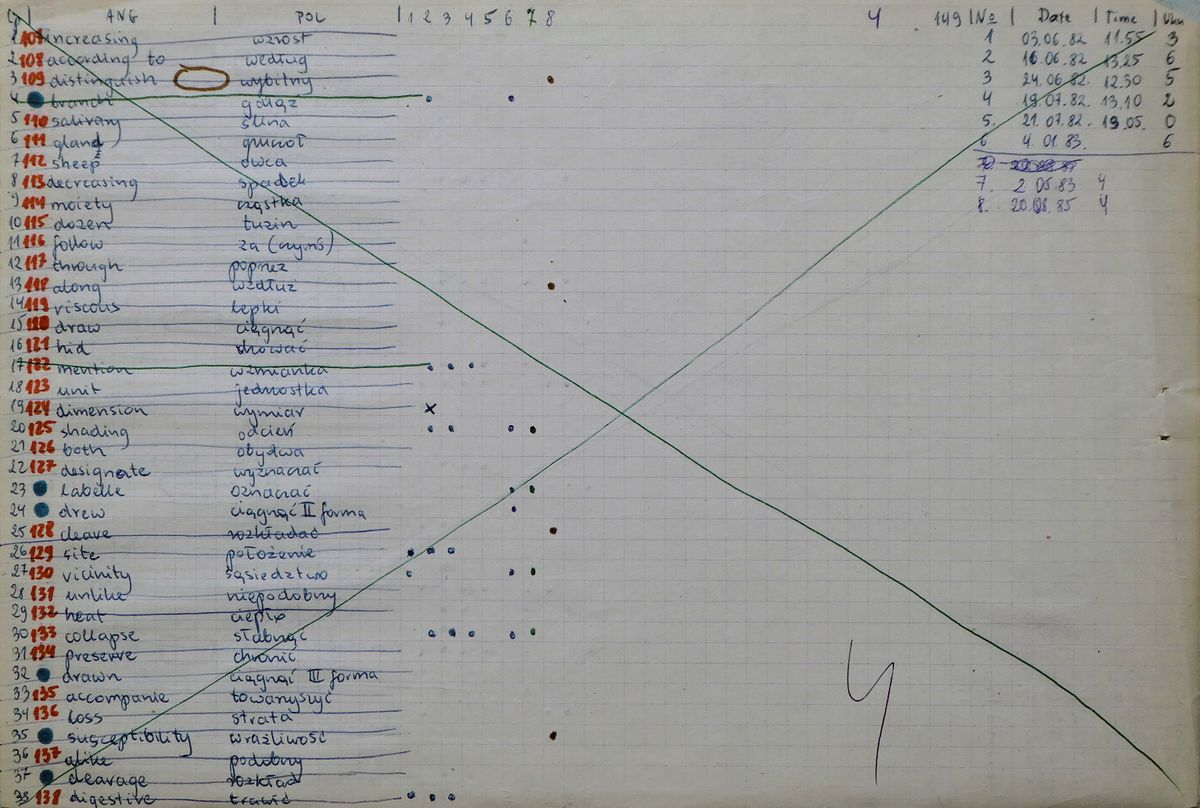 4 | ANG | POL | 1 2 3 4 5 6 7 8 4 149 | No | Date | Time | Ukn
1 107 increasing wzrost 1 03.06.82 11.55 3
2 108 according to według 2 16.06.82 13.25 6
3 109 distinguish wybitny 3 24.06.82 12.30 5
4 branch gałąź 4 19.07.82. 13.10 2
5 110 salivary ślina 5. 21.07.82. 19.05. 0
6 111 gland gruczoł 6 4.01.83. 6
7 112 sheep owca
8 113 decreasing spadek 7. 2.05.83 4
9 114 moiety cząstka 8. 20.08.85 4
10 115 dozen tuzin
11 116 follow za (czymś)
12 117 through poprzez
13 118 along wzdłuż
14 119 viscous lepki
15 120 draw ciągnąć
16 121 hid chować
17 122 mention wzmianka
18 123 unit jednostka
19 124 dimension wymiar
20 125 shading odcień
21 126 both obydwa
22 127 designate wyznaczać
23 labelle oznaczać
24 drew ciągnąć II forma
25 128 cleave rozkładać
26 129 site położenie
27 130 vicinity sąsiedztwo
28 131 unlike niepodobny
29 132 heat ciepło
30 133 collapse słabnąć
31 134 preserve chronić
32 drawn ciągnąć III forma
33 135 accompanie towarzyszyć
34 136 loss strata
35 susceptibility wrażliwość
36 137 alike podobny
37 cleavage rozkład
38 138 digestive trawić
4